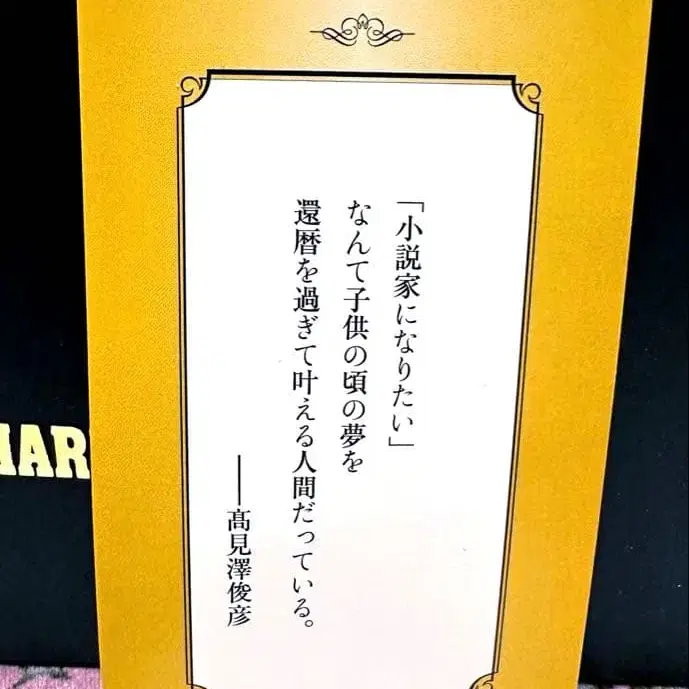 「小説家になりたい」
なんて子供の頃の夢を
還暦を過ぎて叶える人間だっている。
──髙見澤俊彦
HAR